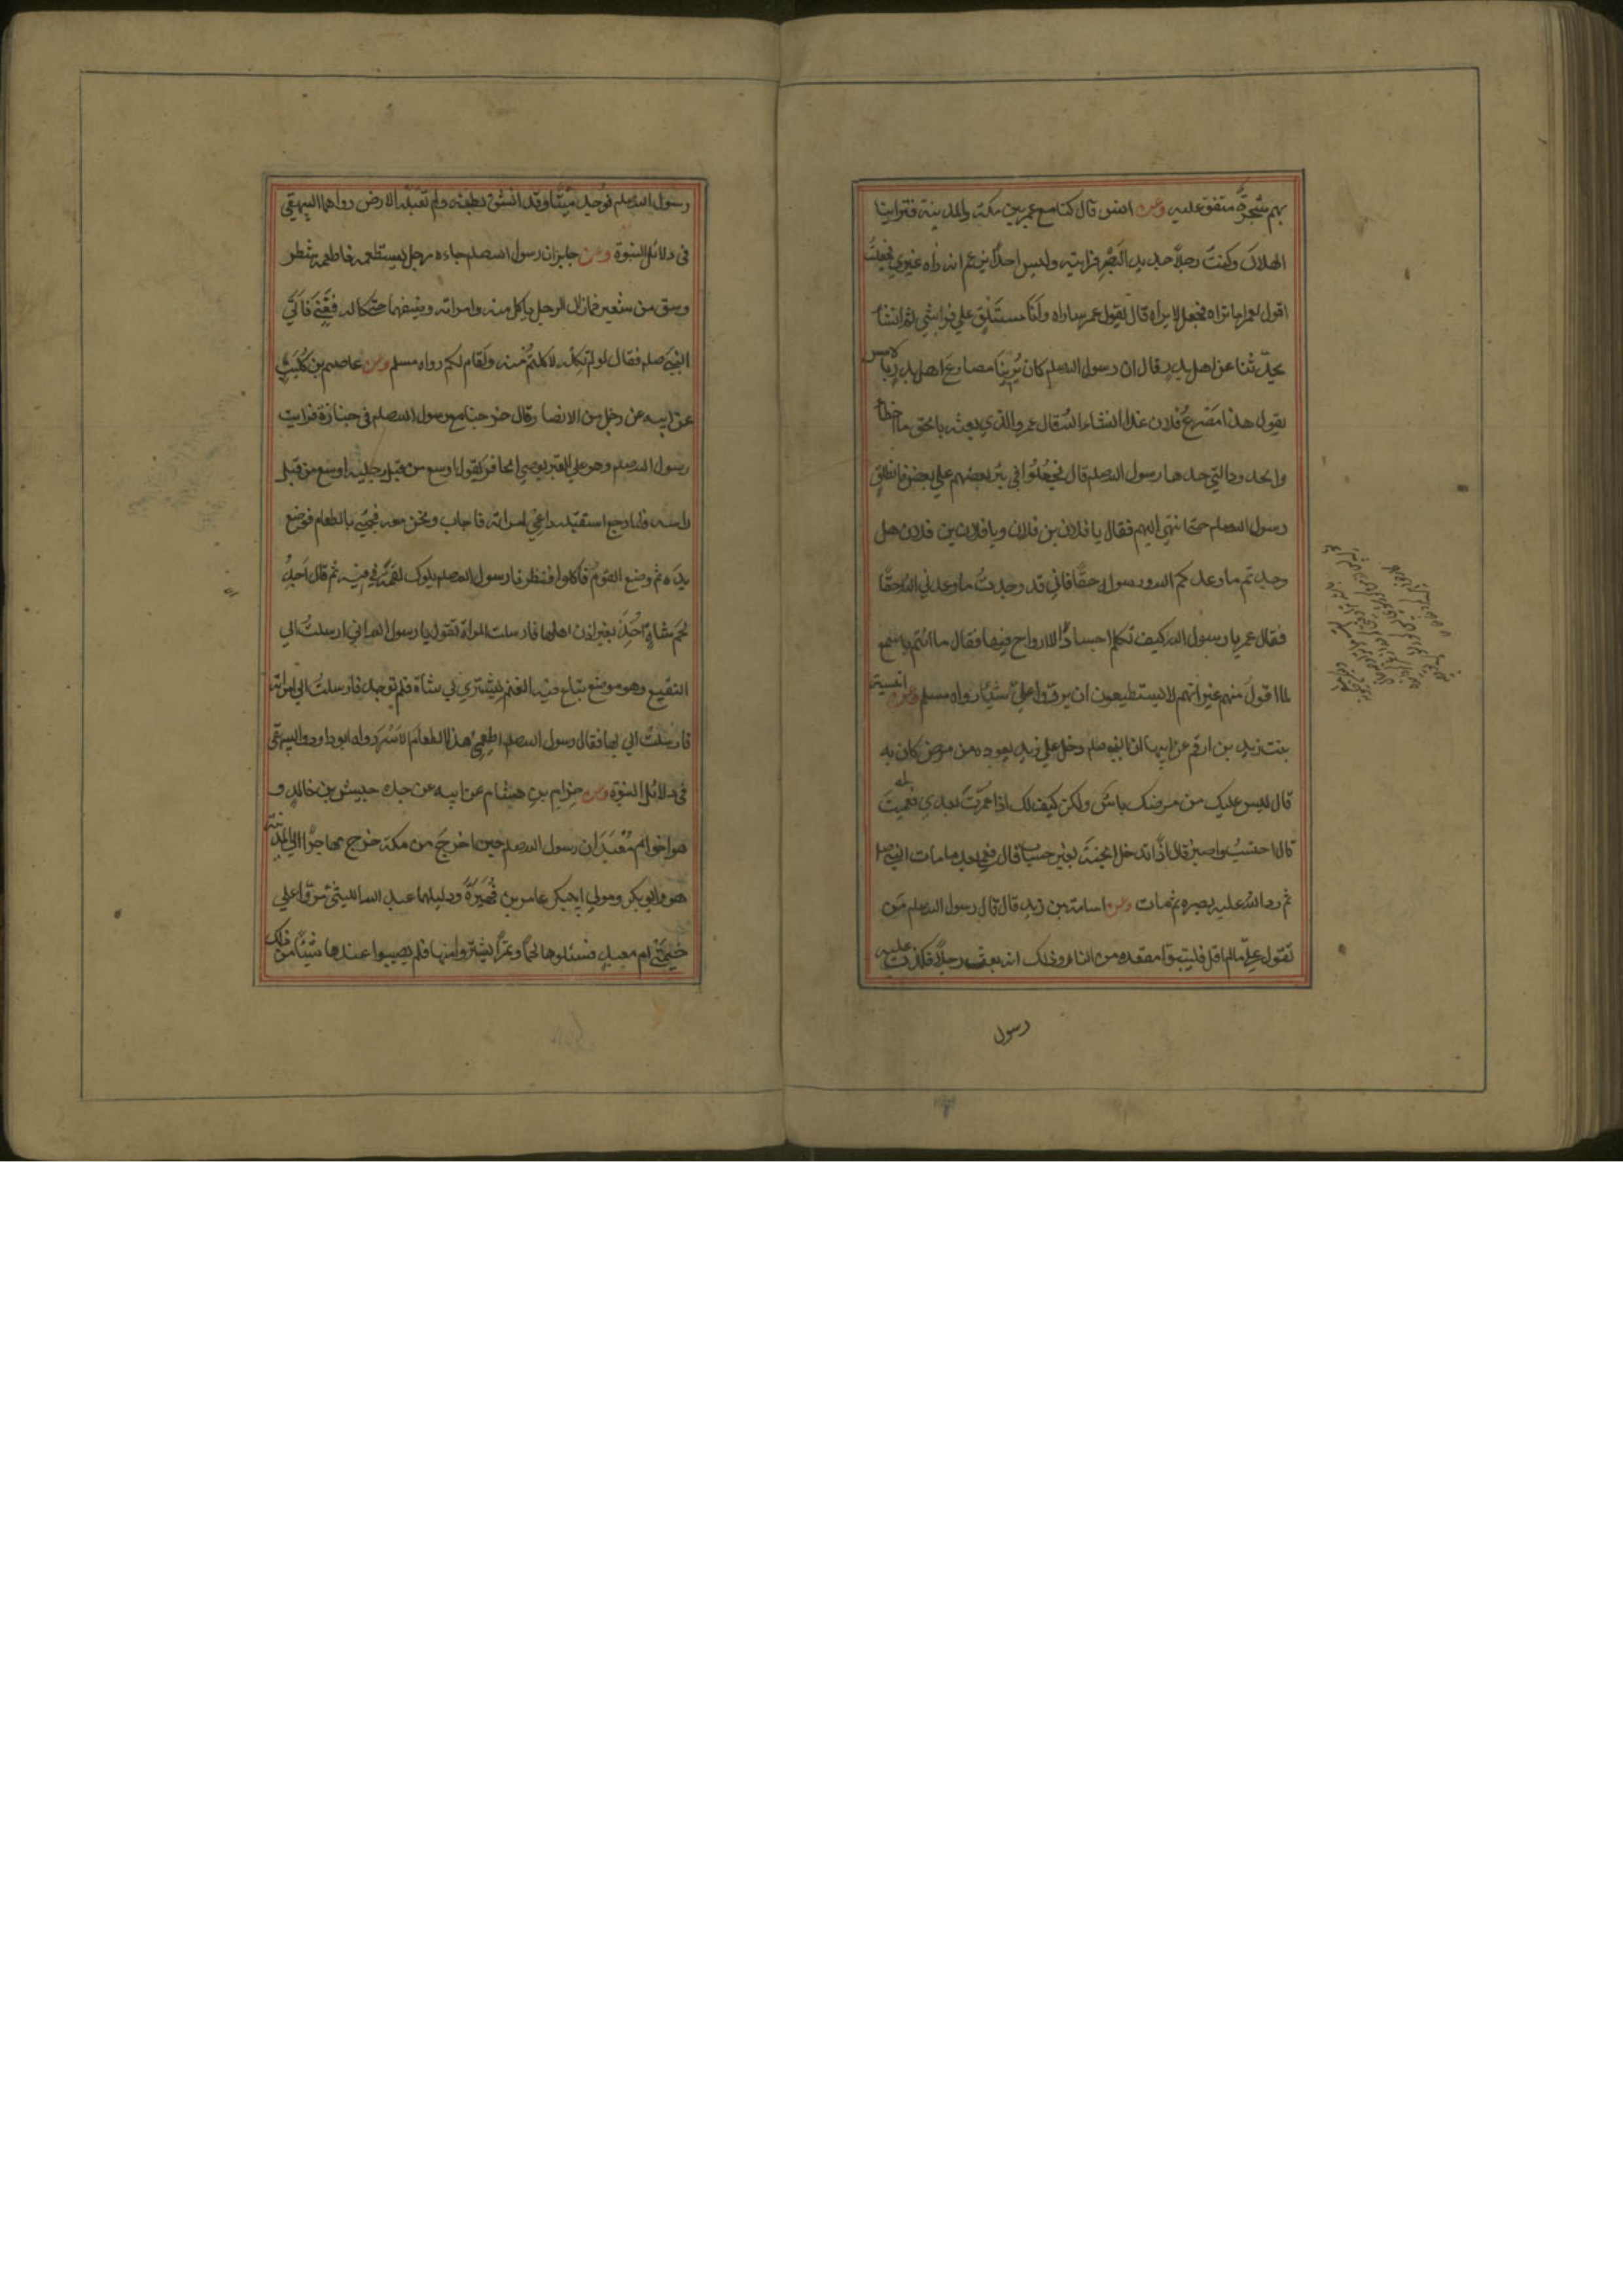 بهم شجرةٌ متفق عليه وعن انس قال كنا مع عمر بين مكة والمدينة فتراينا
الهلال وكنتُ رجلاً حديد البَصَرِ فرايته وليس احدٌ يزعم انه راه غيري فجعلتُ
اقول لعمر اما تراه فجعل لا يراه قال يقول عمر ساراه وانَا مستَلْقٍ علي فراشي ثم انشاء
يحدّثنا عن اهل بدر قال ان رسول الله صلم كان يُرِينَا مصارعَ اهل بدر بالامس
يقول هذا مَصْرعُ فلان غدا انشاء الله قال عمر والذي بعثه بالحق ما اخطأ
وا الحدود التي حدها رسول الله صلم قال فجُعِلُوا في بئر بعضهم علي بعض فانطلق
رسول الله صلم حتي انتهي اليهم فقال يا فلان بن فلان ويا فلان بن فلان هل
وجدتم ما وعدكم الله ورسوله حقًا فاني قد وجدتُ ما وعدني الله حقًا
فقال عمر يا رسول الله كيف تكلم اجسادًا لا ارواح فيها فقال ما انتم باسمع
لما اقولَ منهم غير انهم لا يستطيعون ان يردّوا عليّ شيئًا رواه مسلم وعن انيسة
بنت زيد بن ارقم عن ابيها ان النبي صلم دخل علي زيد يعوده من مرض كان به
قال ليس عليك من مرضك باسٌ ولكن كيف لك اذا عُمِّرْتَ بعدي فعَمِيتَ
قال احتسبُ واصبر قال اذًا تدخل الجنةَ بغير حساب قال فعمي بعد ما مات النبي صلم
ثم رد اللهُ عليه بصره ثم مات وعن اسامة بن زيد قال قال رسول الله صلم مَن
تقوّل عليّ مالم اقل فليتبوّأ مقعده من النار وذلك انه بعث رجلاً فكذب عليه
رسول
رسول الله صلم فوُجد ميّتًا وقد انشق بطنه ولم تقبله الارض رواهما البيهقي
في دلائل النبوة وعن جابر ان رسول الله صلم جاءه رجل يستطعمه فاطعمه شطر
وسق من شعير فما زال الرجل ياكل منه وامراته وضيفهما حتي كاله فَفَنِيَ فَاتَي
النبيَ صلم فقال لو لم تَكِلْه لاكلتم منه ولَقام لكم رواه مسلم وعن عاصم بن كُلَيبٍ
عن ابيه عن رجل من الانصار قال خرجنا مع رسول الله صلم في جنازة فرايت
رسول الله صلم وهو علي القبر يوصي الحافر يقول اوسع من قِبَلِ رجليه اوسع من قبل
راسه فلما رجع استقبله داعي امراته فاجاب ونحن معه فجيئ بالطعام فوضع
يدَه ثم وضع القومُ فاكلوا فنظرنا رسول الله صلم يلوك لقمةً في فيه ثم قال اَجِدُ
لحم شاةٍ اُخِذَتْ بغير اذن اهلها فارسلت المراة تقول يا رسول الله اني ارسلتُ الي
النقيع وهو موضع يباع فيه الغنم ليشتري لي شاة فلم توجد فارسلتُ الي امراته
فارسلتْ الي بها فقال رسول الله صلم اطعِمِي هذا الطعام الاَسْرَي رواه ابو داود والبيهقي
في دلائل النبوة وعن حزام بن هشام عن ابيه عن جده حبيش بن خالد و
هو اخو ام مَعْبَدٍ ان رسول الله صلم حين اُخرجَ من مكة خرج مهاجرًا الي المدينة
هو وابو بكر ومولي ابي بكر عامر بن فُهَيرَةَ ودليلهما عبد الله الليثي مرّوا علي
خيمتَي ام معبد فسئلوها لحمًا وتمرًا ليشتروا منها فلم يصيبوا عندها شيئًا من ذلك